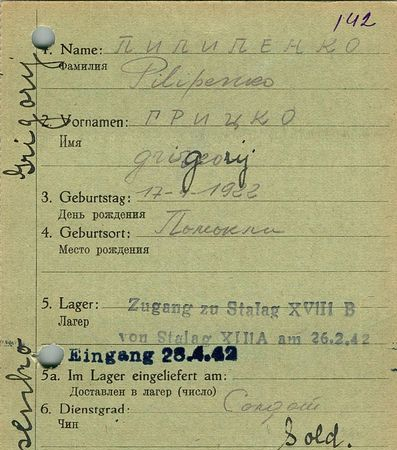 142
1. Name: ПИЛИПЕНКО
Фамилия
Pilipenko
2. Vornamen: ГРИЦКО
Имя
grigorij
3. Geburtstag: 17-1-1922
День рождения
4. Geburtsort: Помокли
Место рождения
5. Lager: Zugang zu Stalag XVIII B
Лагерь
von Stalag XIIIA am 26.2.42
Eingang 28.4.42
5a. Im Lager eingeliefert am:
Доставлен в лагерь (число)
6. Dienstgrad: Солдат
Чин
Sold.
Grigorij